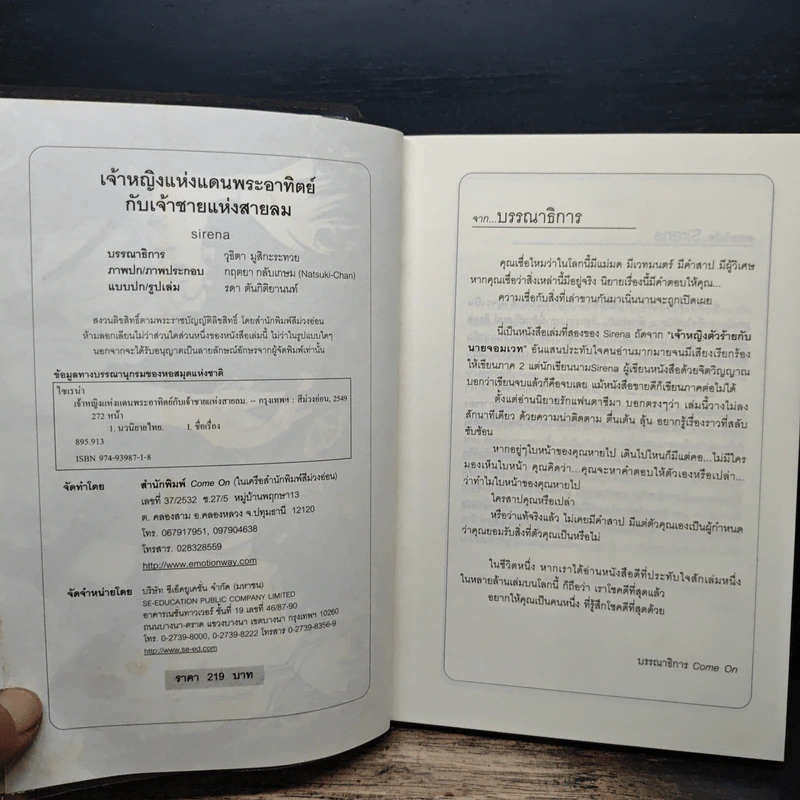 เจ้าหญิงแห่งแดนพระอาทิตย์
กับเจ้าชายแห่งสายลม
sirena
บรรณาธิการ วุธิตา มูสิกะระทวย
ภาพปก/ภาพประกอบ กฤตยา กลับเกษม (Natsuki-Chan)
แบบปก/รูปเล่ม รดา ตันกิติยานนท์
สงวนลิขสิทธิ์ตามพระราชบัญญัติลิขสิทธิ์ โดยสำนักพิมพ์สีม่วงอ่อน
ห้ามลอกเลียนไม่ว่าส่วนใดส่วนหนึ่งของหนังสือเล่มนี้ ไม่ว่าในรูปแบบใดๆ
นอกจากจะได้รับอนุญาตเป็นลายลักษณ์อักษรจากผู้จัดพิมพ์เท่านั้น
ข้อมูลทางบรรณานุกรมของหอสมุดแห่งชาติ
ไซเรน่า
เจ้าหญิงแห่งแดนพระอาทิตย์กับเจ้าชายแห่งสายลม. -- กรุงเทพฯ : สีม่วงอ่อน, 2549
272 หน้า
1. นวนิยายไทย. I. ชื่อเรื่อง
895.913
ISBN 974-93987-1-8
จัดทำโดย สำนักพิมพ์ Come On (ในเครือสำนักพิมพ์สีม่วงอ่อน)
เลขที่ 37/2532 ซ.27/5 หมู่บ้านพฤกษา13
ต. คลองสาม อ.คลองหลวง จ.ปทุมธานี 12120
โทร. 067917951, 097904638
โทรสาร. 028328559
http://www.emotionway.com
จัดจำหน่ายโดย บริษัท ซีเอ็ดยูเคชั่น จำกัด (มหาชน)
SE-EDUCATION PUBLIC COMPANY LIMITED
อาคารเนชั่นทาวเวอร์ ชั้นที่ 19 เลขที่ 46/87-90
ถนนบางนา-ตราด แขวงบางนา เขตบางนา กรุงเทพฯ 10260
โทร. 0-2739-8000, 0-2739-8222 โทรสาร 0-2739-8356-9
http://www.se-ed.com
ราคา 219 บาท
จาก...บรรณาธิการ
คุณเชื่อไหมว่าในโลกนี้มีแม่มด มีเวทมนตร์ มีคำสาป มีผู้วิเศษ
หากคุณเชื่อว่าสิ่งเหล่านี้มีอยู่จริง นิยายเรื่องนี้มีคำตอบให้คุณ...
ความเชื่อกับสิ่งที่เล่าขานกันมาเนิ่นนานจะถูกเปิดเผย
นี่เป็นหนังสือเล่มที่สองของ Sirena ถัดจาก "เจ้าหญิงตัวร้ายกับ
นายจอมเวท" อันแสนประทับใจคนอ่านมากมายจนมีเสียงเรียกร้อง
ให้เขียนภาค 2 แต่นักเขียนนามSirena ผู้เขียนหนังสือด้วยจิตวิญญาณ
บอกว่าเขียนจบแล้วก็คือจบเลย แม้หนังสือขายดีก็เขียนภาคต่อไม่ได้
ตั้งแต่อ่านนิยายรักแฟนตาซีมา บอกตรงๆว่า เล่มนี้วางไม่ลง
สักนาทีเดียว ด้วยความน่าติดตาม ตื่นเต้น ลุ้น อยากรู้เรื่องราวที่สลับ
ซับซ้อน
หากอยู่ๆใบหน้าของคุณหายไป เดินไปไหนก็มีแต่คอ...ไม่มีใคร
มองเห็นใบหน้า คุณคิดว่า...คุณจะหาคำตอบให้ตัวเองหรือเปล่า...
ว่าทำไมใบหน้าของคุณหายไป
ใครสาปคุณหรือเปล่า
หรือว่าแท้จริงแล้ว ไม่เคยมีคำสาป มีแต่ตัวคุณเองเป็นผู้กำหนด
ว่าคุณยอมรับสิ่งที่ตัวคุณเป็นหรือไม่
ในชีวิตหนึ่ง หากเราได้อ่านหนังสือดีที่ประทับใจสักเล่มหนึ่ง
ในหลายล้านเล่มบนโลกนี้ ก็ถือว่า เราโชคดีที่สุดแล้ว
อยากให้คุณเป็นคนหนึ่ง ที่รู้สึกโชคดีที่สุดด้วย
บรรณาธิการ Come On